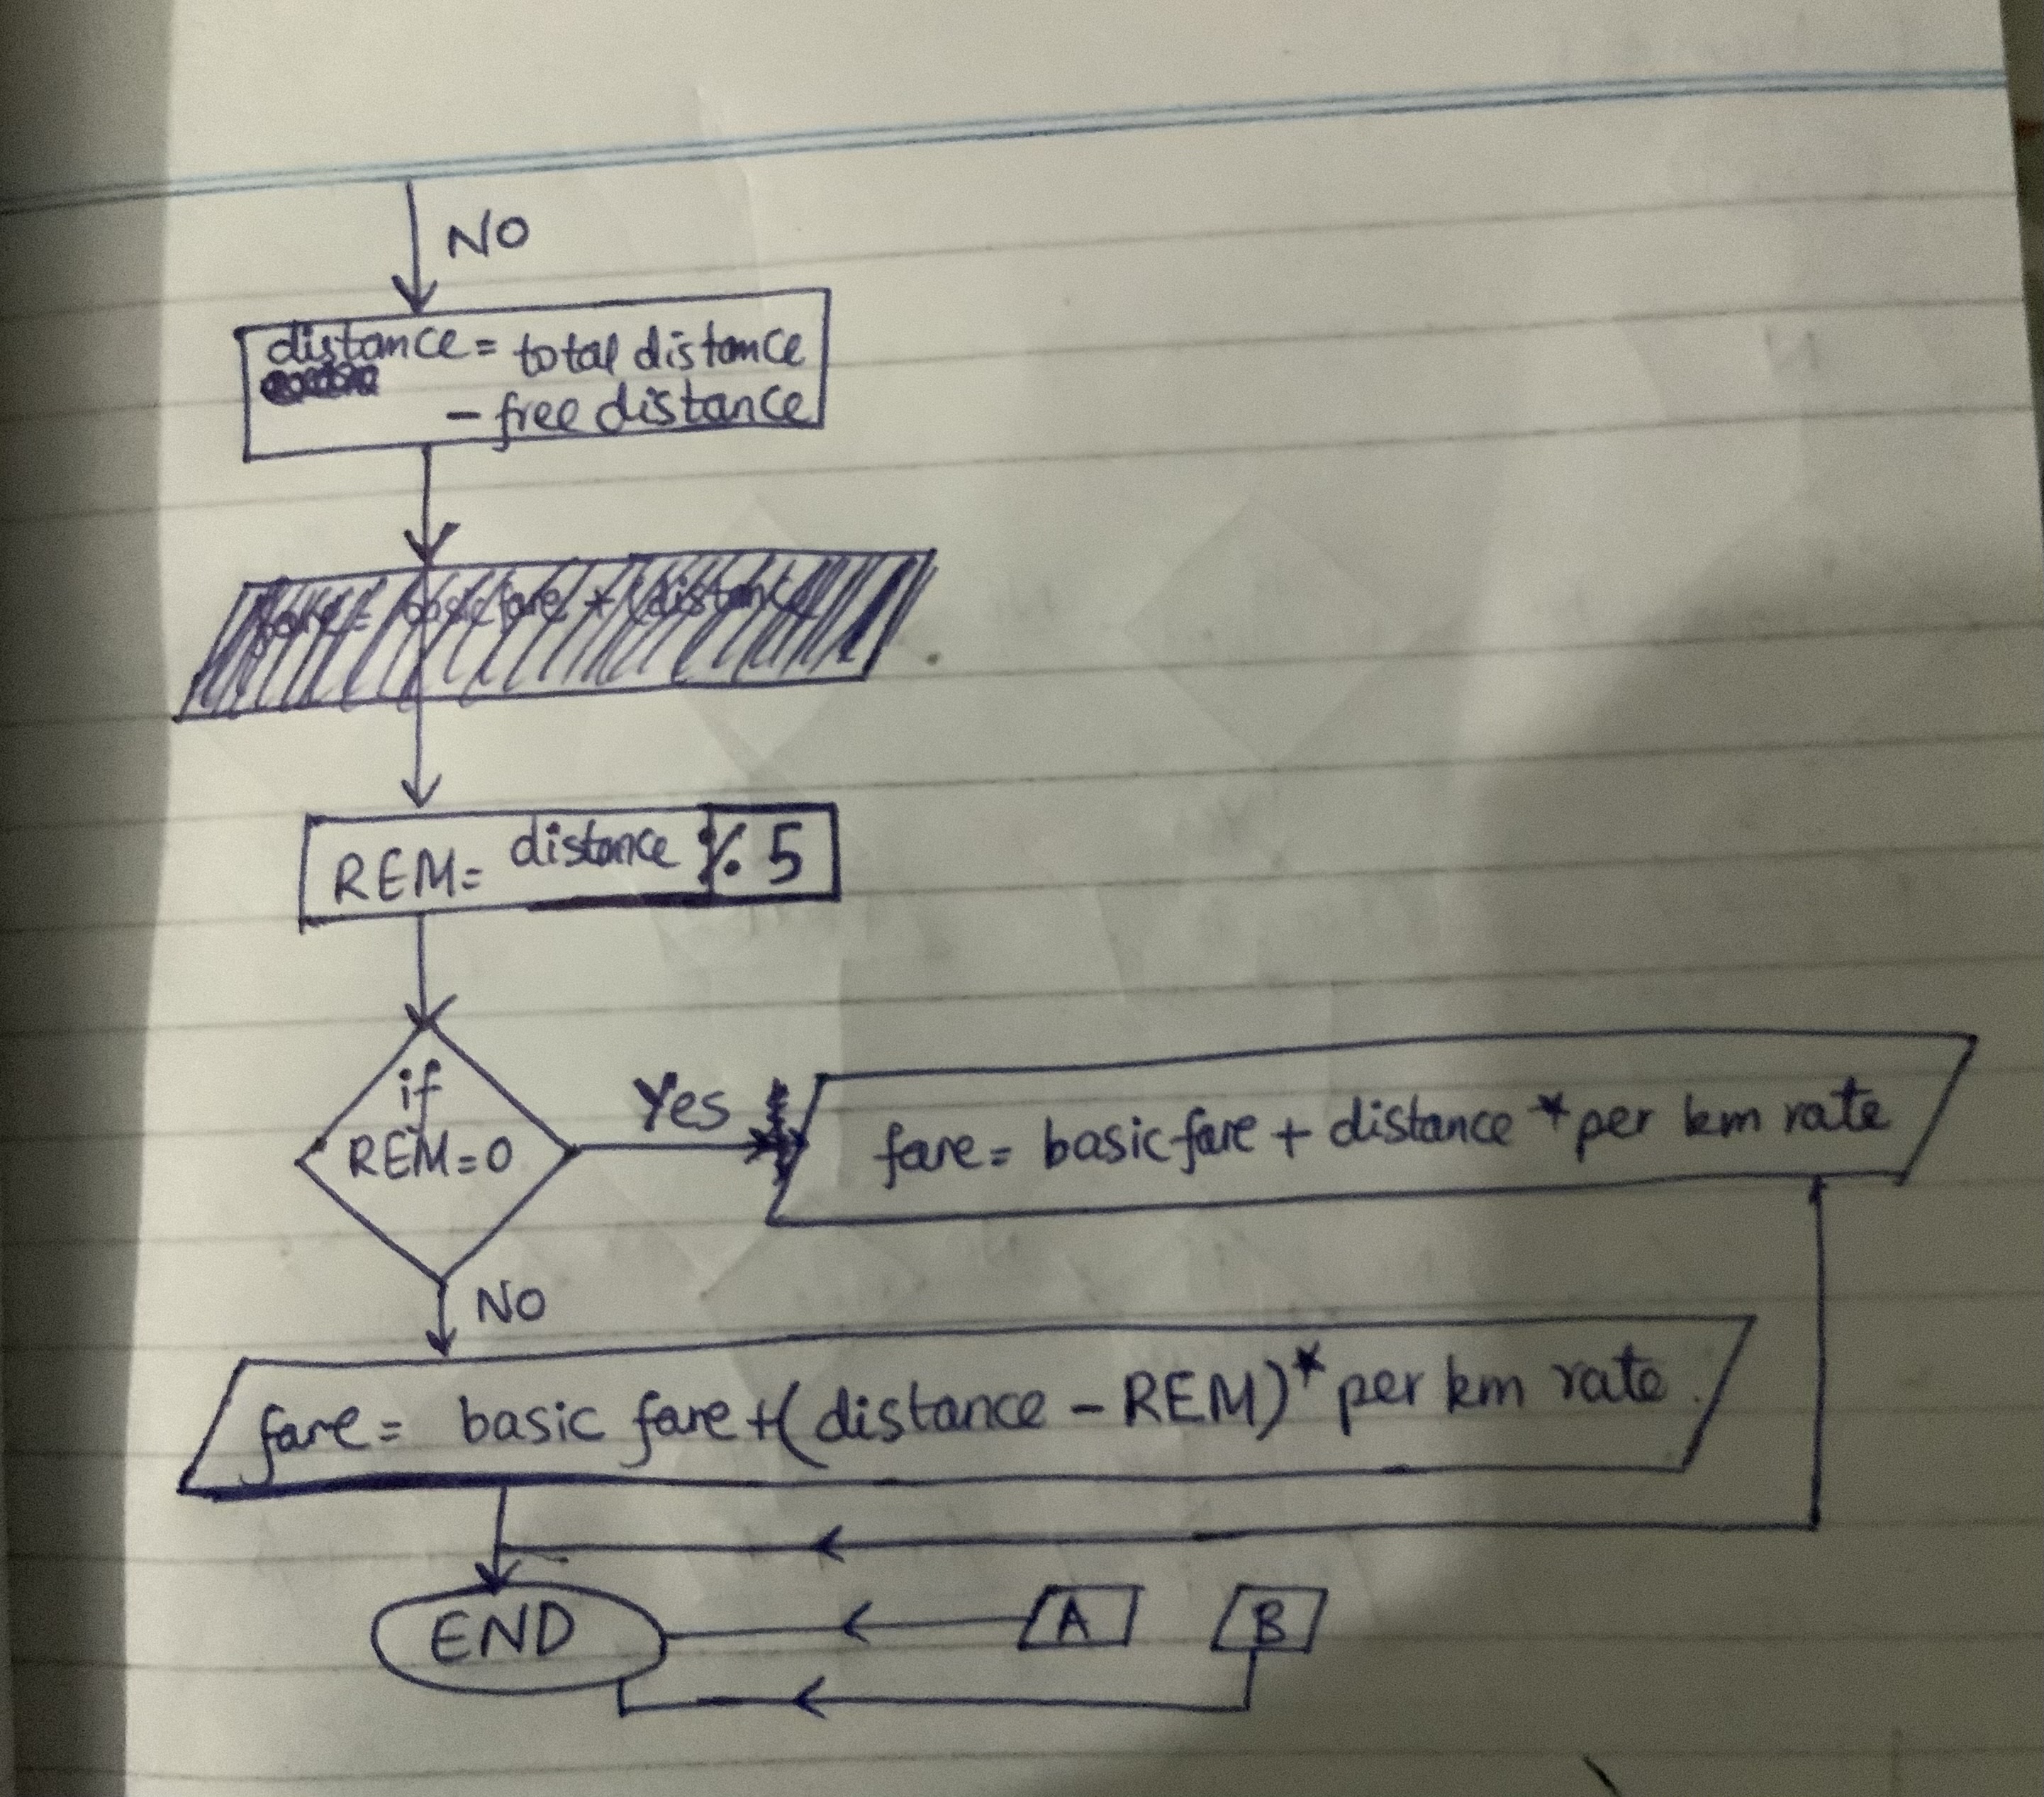 NO
distance = total distance
- free distance
REM = distance % 5
if
REM=0
Yes
fare = basic fare + distance * per km rate
NO
fare = basic fare + (distance - REM) * per km rate.
END
A
B